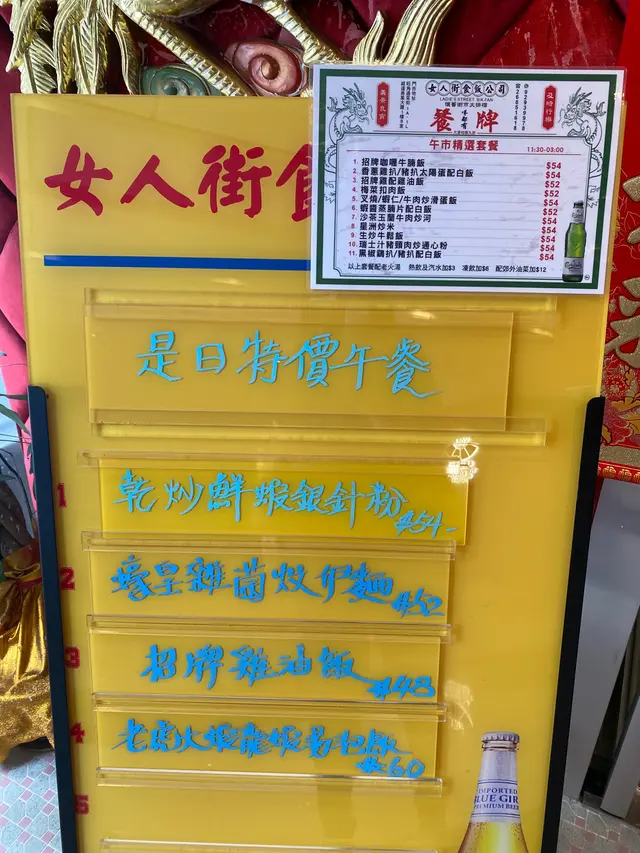 女人街食飯公司
LADIE'S STREET SIK FAN
餐牌
午市精選套餐
11:30-03:00
1. 招牌咖喱牛腩飯 $54
2. 香蔥雞扒/豬扒太陽蛋配白飯 $54
3. 招牌雞配雞油飯 $52
4. 梅菜扣肉飯 $52
5. 叉燒/蝦仁/牛肉炒滑蛋飯 $54
6. 蝦醬蒸腩片配白飯 $52
7. 沙茶玉蘭牛肉炒河 $54
8. 星洲炒米 $54
9. 生炒牛鬆飯 $54
10. 瑞士汁豬頸肉炒通心粉 $54
11. 黑椒鷄扒/豬扒配白飯 $54
以上套餐配老火湯 熱飲及汽水加$3 凍飲加$6 配郊外油菜加$12
女人街食
是日特價午餐
1 乾炒鮮蝦銀針粉 $54-
2 蠔皇雜菌炆伊麵 $52
3 招牌雞油飯 $48
4 老虎大蝦龍蝦湯泡飯 $60
5
IMPORTED
BLUE GIR
PREMIUM BEER